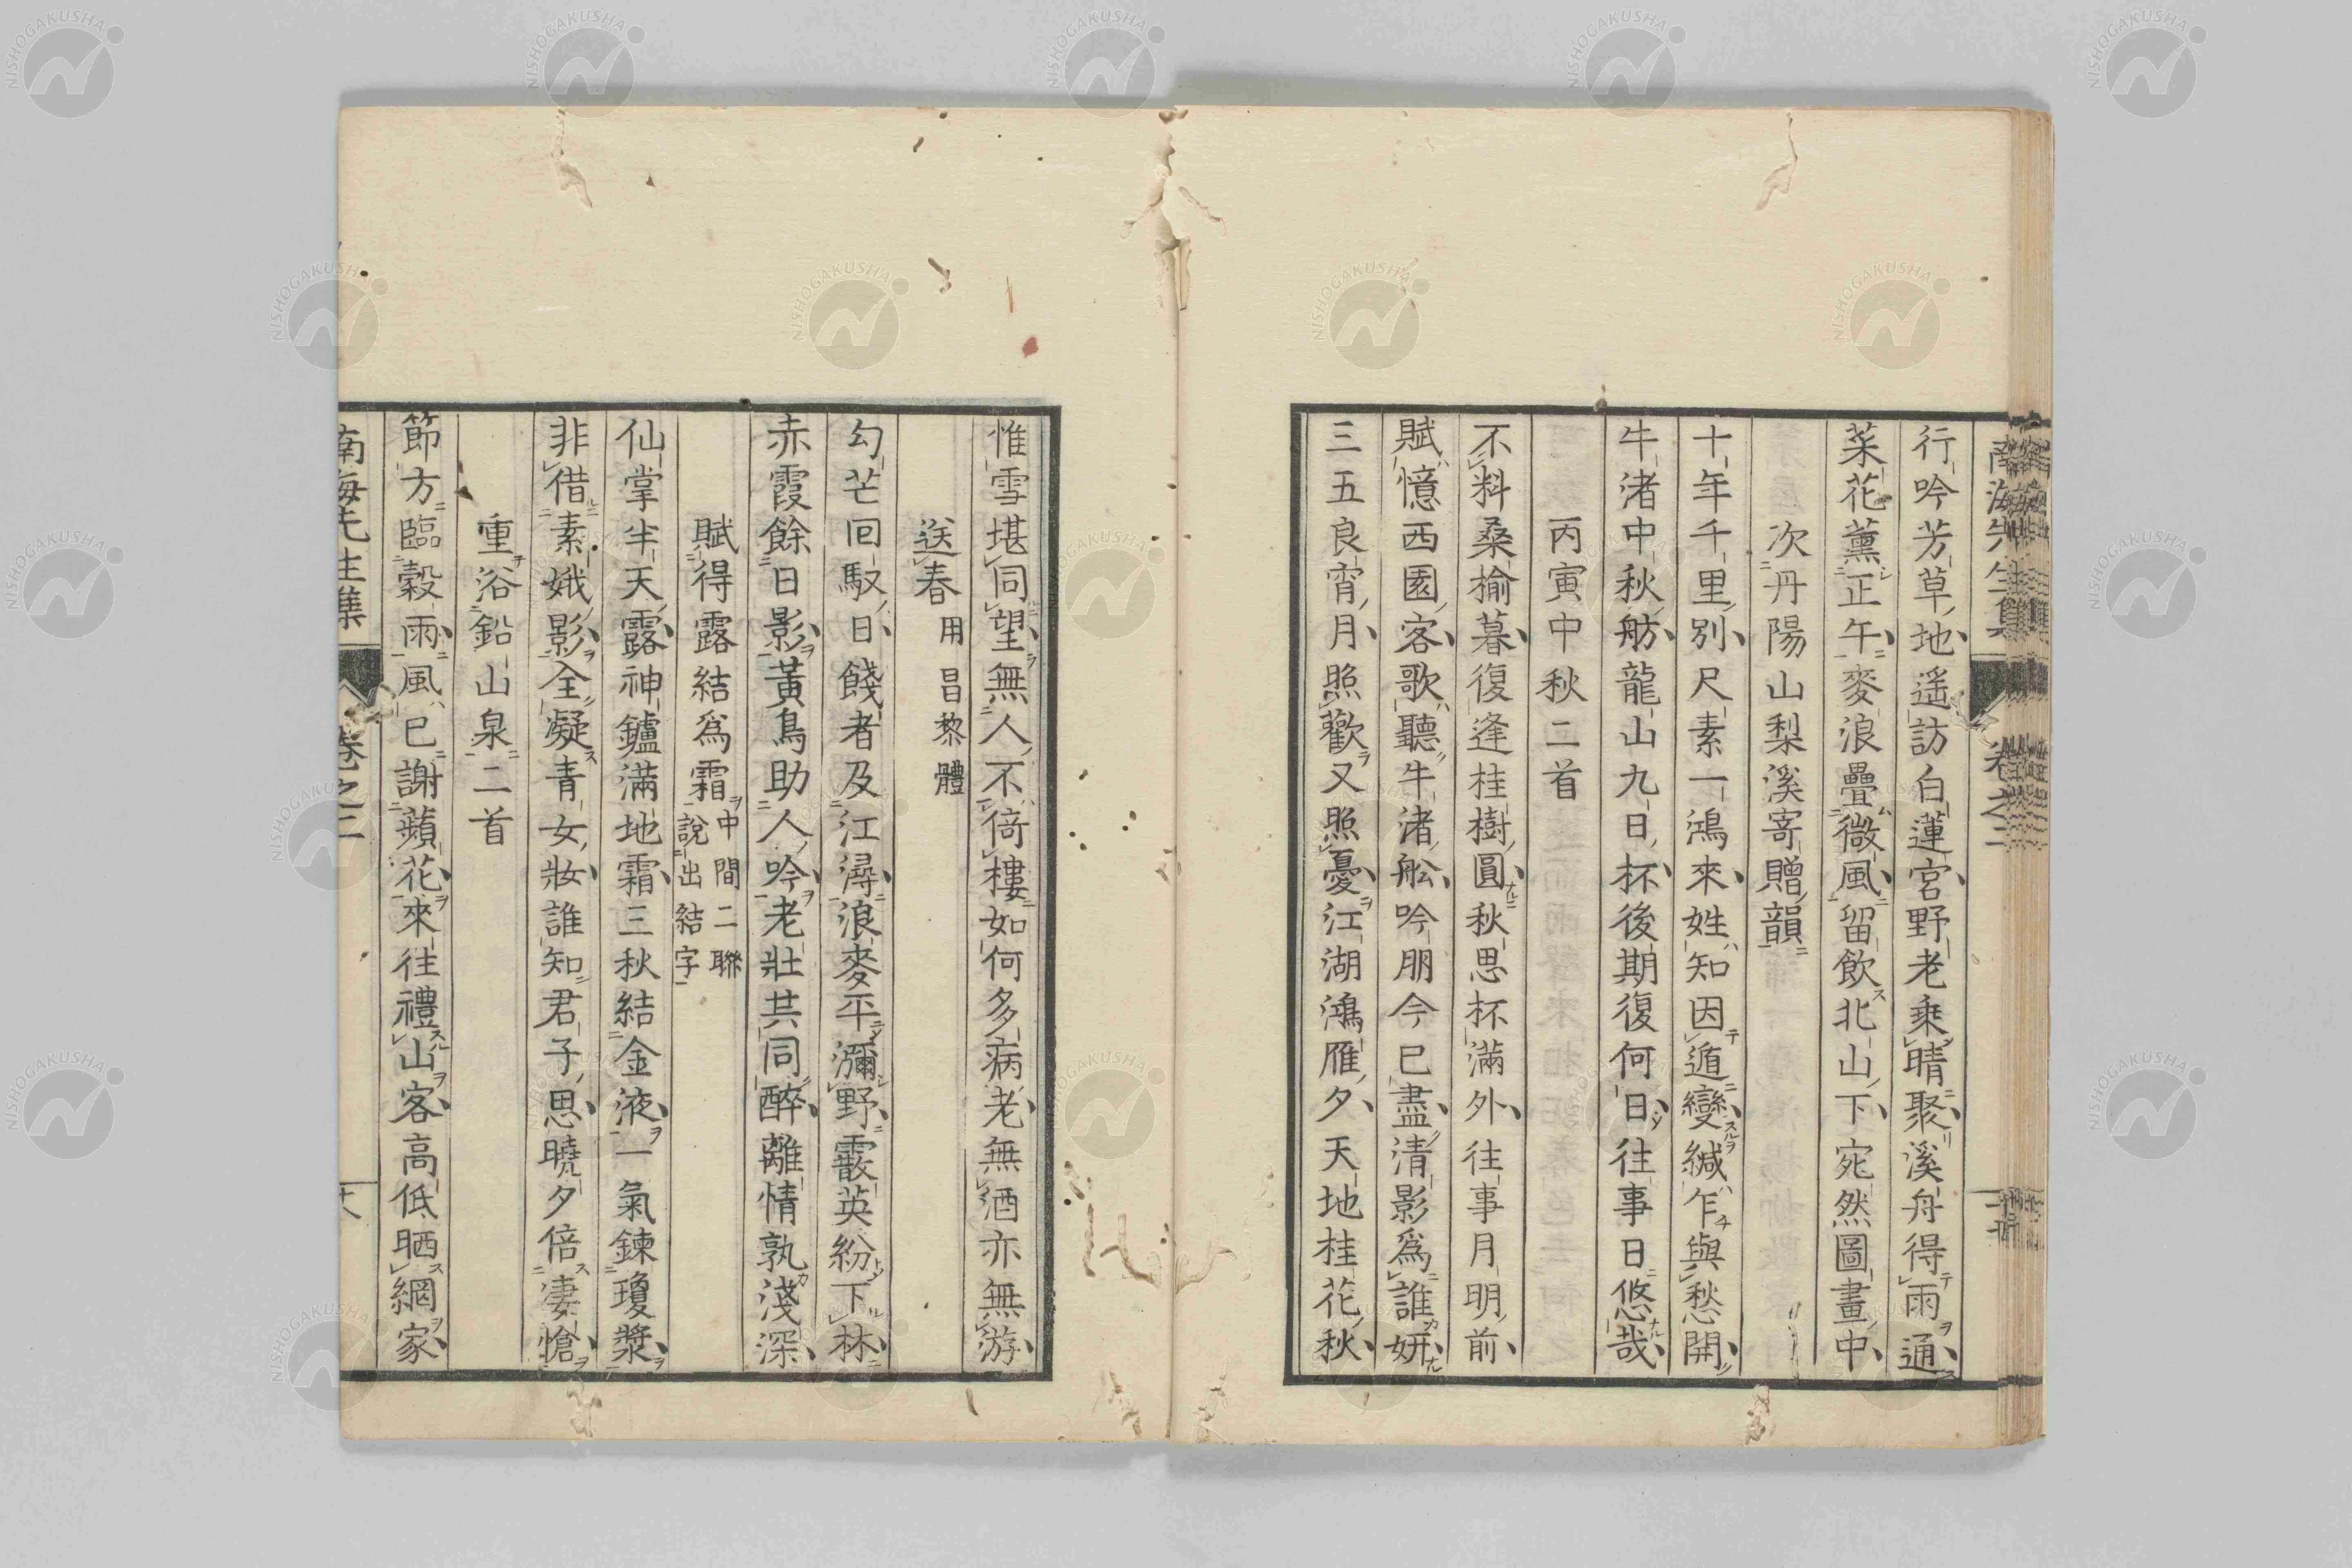 南海先生集 卷之二
行吟芳草地遥訪白蓮宮野老乗晴聚溪舟得雨通
菜花薫正午麥浪疊微風留飲北山下宛然圖畫中
次丹陽山梨溪寄贈韻
十年千里別尺素一鴻來姓知因遁變緘乍與愁開
牛渚中秋舫龍山九日杯後期復何日往事日悠哉
丙寅中秋二首
不料桑榆暮復逢桂樹圓秋思杯滿外往事月明前
賦憶西園客歌聽牛渚舩吟朋今已盡清影爲誰妍
三五良宵月照歡又照憂江湖鴻雁夕天地桂花秋
惟雪堪同望無人不倚樓如何多病老無酒亦無游
送春 用昌黎體
勾芒回馭日餞者及江潯浪麥平瀰野霰英紛下林
赤霞餘日影黃鳥助人吟老壯共同醉離情孰淺深
賦得露結爲霜 中間二聯說出結字
仙掌半天露神鑪滿地霜三秋結金液一氣鍊瓊漿
非借素娥影全凝青女妝誰知君子思曉夕倍凄愴
重浴鉛山泉二首
節方臨穀雨風已謝蘋花來往禮山客高低晒網家
南海先生集 卷之二